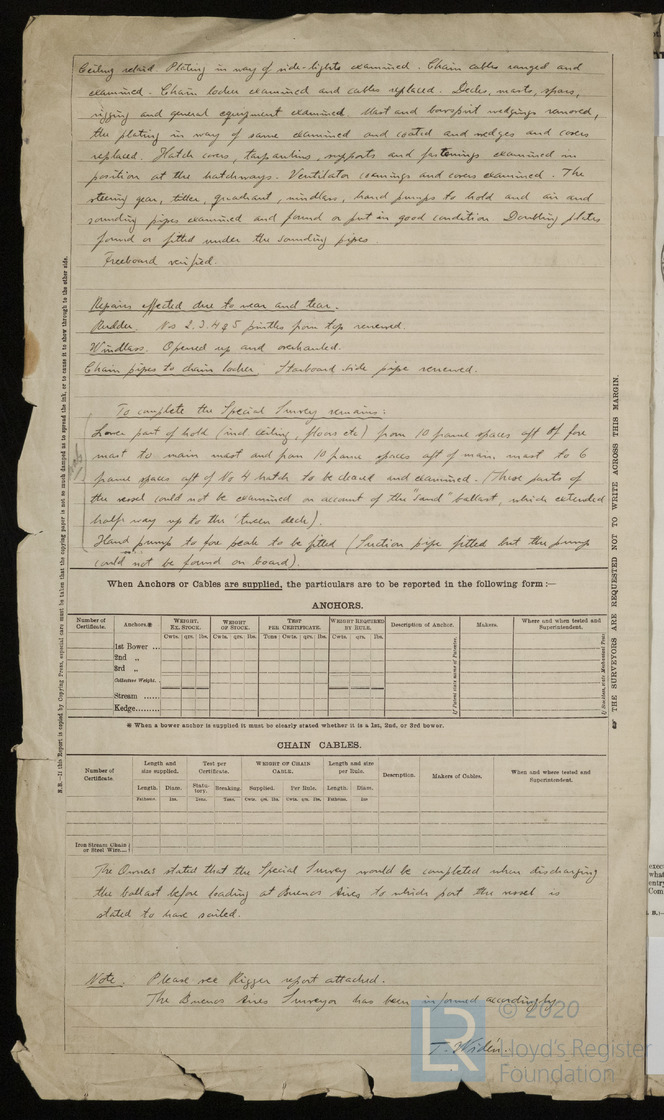 Ceiling relaid. Plating in way of side-lights examined. Chain cables ranged and
examined. Chain locker examined and cables replaced. Decks, masts, spars,
rigging and general equipment examined. Mast and bowsprit wedgings removed,
the plating in way of same examined and coated and wedges and covers
replaced. Hatch covers, tarpaulins, supports and fastenings examined in
position at the hatchways. Ventilator coamings and covers examined. The
steering gear, tiller, quadrant, windlass, hand pumps to hold and air and
sounding pipes examined and found or put in good condition. Doubling plates
found or fitted under the sounding pipes
Freeboard verified.
Repairs effected due to wear and tear.
Rudder. Nos 2.3.4 & 5 pintles from top renewed.
Windlass. Opened up and overhauled.
Chain pipes to chain locker. Starboard side pipe renewed.
To complete the Special Survey remains:
Lower part of hold (incl. ceiling, floors etc) from 10 frame spaces aft of fore
mast to main mast and from 10 frame spaces aft of main mast to 6
frame spaces aft of No 4 hatch to be cleared and examined. (These parts of
the vessel could not be examined on account of the "sand" ballast, which extended
half way up to the 'tween deck).
Hand pump to fore peak to be fitted (Suction pipe fitted but the pump
could not be found on board).
When Anchors or Cables are supplied, the particulars are to be reported in the following form :—
ANCHORS.
Number of Certificate. Anchors.* WEIGHT, EX. STOCK. WEIGHT OF STOCK. TEST PER CERTIFICATE. WEIGHT REQUIRED BY RULE. Description of Anchor. Makers. Where and when tested and Superintendent.
Cwts. qrs. lbs. Cwts. qrs. lbs. Tons Cwts. qrs. lbs. Cwts. qrs. lbs.
1st Bower ...
2nd „
3rd „
Collective Weight.
Stream ......
Kedge.........
If Patent state name of Patentee.
* When a bower anchor is supplied it must be clearly stated whether it is a 1st, 2nd, or 3rd bower.
CHAIN CABLES.
Number of Certificate. Length and size supplied. Test per Certificate. WEIGHT OF CHAIN CABLE. Length and size per Rule. Description. Makers of Cables. When and where tested and Superintendent.
Length. Diam. Statutory. Breaking. Supplied. Per Rule. Length. Diam.
Fathoms. Ins. Tons. Tons. Cwts. qrs. lbs. Cwts. qrs. lbs. Fathoms. Ins
Iron Stream Chain or Steel Wire....
The Owners stated that the Special Survey would be completed when discharging
the ballast before loading at Buenos Aires to which port the vessel is
stated to have sailed.
Note. Please see Rigger report attached.
The Buenos Aires Surveyor has been informed accordingly
T. Widén.
N.B.—If this Report is copied by Copying Press, especial care must be taken that the copying paper is not so much damped as to spread the ink, or to cause it to show through to the other side.
THE SURVEYORS ARE REQUESTED NOT TO WRITE ACROSS THIS MARGIN.
© 2020
LR
Lloyd's Register
Foundation